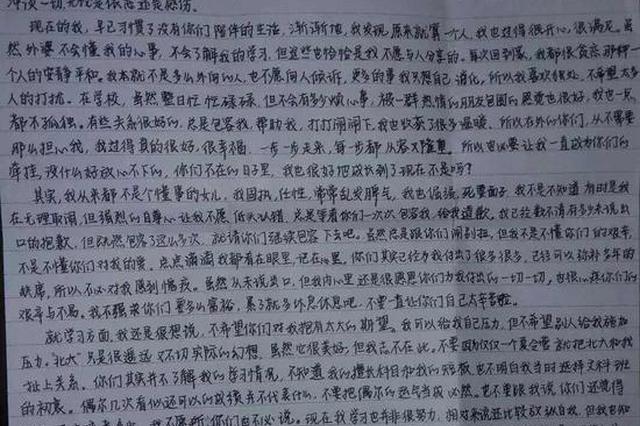 冲淡一切，无忧是很想还是感伤。
现在的我，早已习惯了没有你们陪伴的生活，渐渐渐地，我发现，原来就算一个人，我也过得很开心，很满足。虽
然外婆不会懂我的心事，不会了解我的学习，但这些也恰恰是我不愿与人分享的。每次回到家，我都很贪恋那种一
个人的安静平和。我本就不是多么外向的人，也不愿向人倾诉，更多的事我只想自己消化。所以我喜欢独处，不希望太多
人的打扰。在学校，虽然整日忙忙碌碌，但不会有多少烦心事，被一群热情的朋友包围的感觉也很好，我也一点
都不孤独。有些关系很好的，总是包容我，帮助我，打打闹闹下，我也收获了很多温暖。所以在外的你们，从不需要
那么担心我，我过得真的很好，很幸福，一步一步走来，每一步都从容又随意。所以也不必要让我一直成为你们的
牵挂，没什么好放心不下的，你们不在的日子里，我也很好地成长到了现在不是吗？
其实，我从来都不是个懂事的女儿，我固执，任性，常常乱发脾气，我也倔强，死要面子，我不是不知道有时是我
在无理取闹，但强烈的自尊心让我不愿低头认错，总是等着你们一次次包容我，给我道歉，我已经数不清有多少未说出
口的抱歉，但既然包容了这么多次，就请你们继续包容下去吧。虽然总是跟你们闹别扭，但我不是不懂你们的艰辛，
不是不懂你们对我的爱。点点滴滴我都看在眼里，记在心里。你们其实已经为我付出了很多很多，已经可以弥补多年的
缺席，所以不必对我感到愧疚。虽然从未说出口，但我内心里还是很感恩你们为我付出的一切一切，也很心疼你们的
艰辛与不易。我不强求你们要多么富裕，累了就多休息休息吧，不要一直让你们自己太辛苦啦。
就学习方面，我还是很想说，不希望你们对我抱有太大的期望。我可以给我自己压力，但不希望别人给我施加
压力。“北大”只是很遥远不切实际的幻想，虽然它很美好，但我志不在此。不要因为仅仅一个夏令营就把北大和我
扯上关系。你们其实并不了解我的学习情况，不知道我的擅长科目和我的短板，也不明白我当时选择文科班
的初衷。偶尔几次看似还可以的成绩并不代表什么，不要把偶尔的运气当成必然。也不要跟我说你们还觉得
我不愿听，你们也不必说。现在我学习也并非很努力，相对来说还比较放纵自我，但我也知